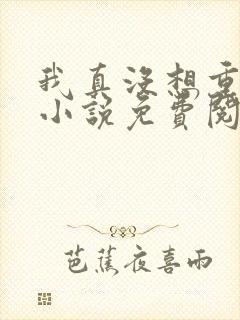 我真没想重
小說免費閱
芭蕉夜喜雨